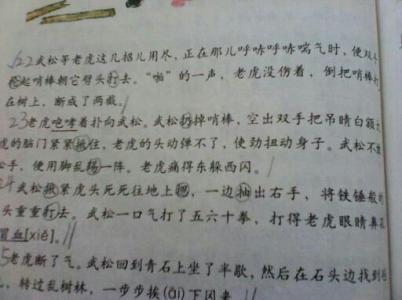 22武松等老虎这几招儿用尽,正在那儿呼哧呼哧喘气时,便双
起哨棒朝它劈头打去。“啪”的一声,老虎没伤着,倒把哨棒
在树上,断成了两截。
23老虎咆哮着扑向武松。武松扔掉哨棒,空出双手把吊睛白额
虎的脑门紧紧揪住,老虎的头动弹不了,使劲扭动身子。武松不
松手,便用脚乱踢一阵。老虎痛得东躲西闪。
24武松揪紧虎头死死往地上摁,一边抽出右手,将铁锤般的
头重重打去。武松一口气打了五六十拳,打得老虎眼睛鼻
冒血[xiě]。
5老虎断了气。武松回到青石上坐了半歇,然后在石头边找到
,转过乱树林,一步步挨(āi)下冈来。